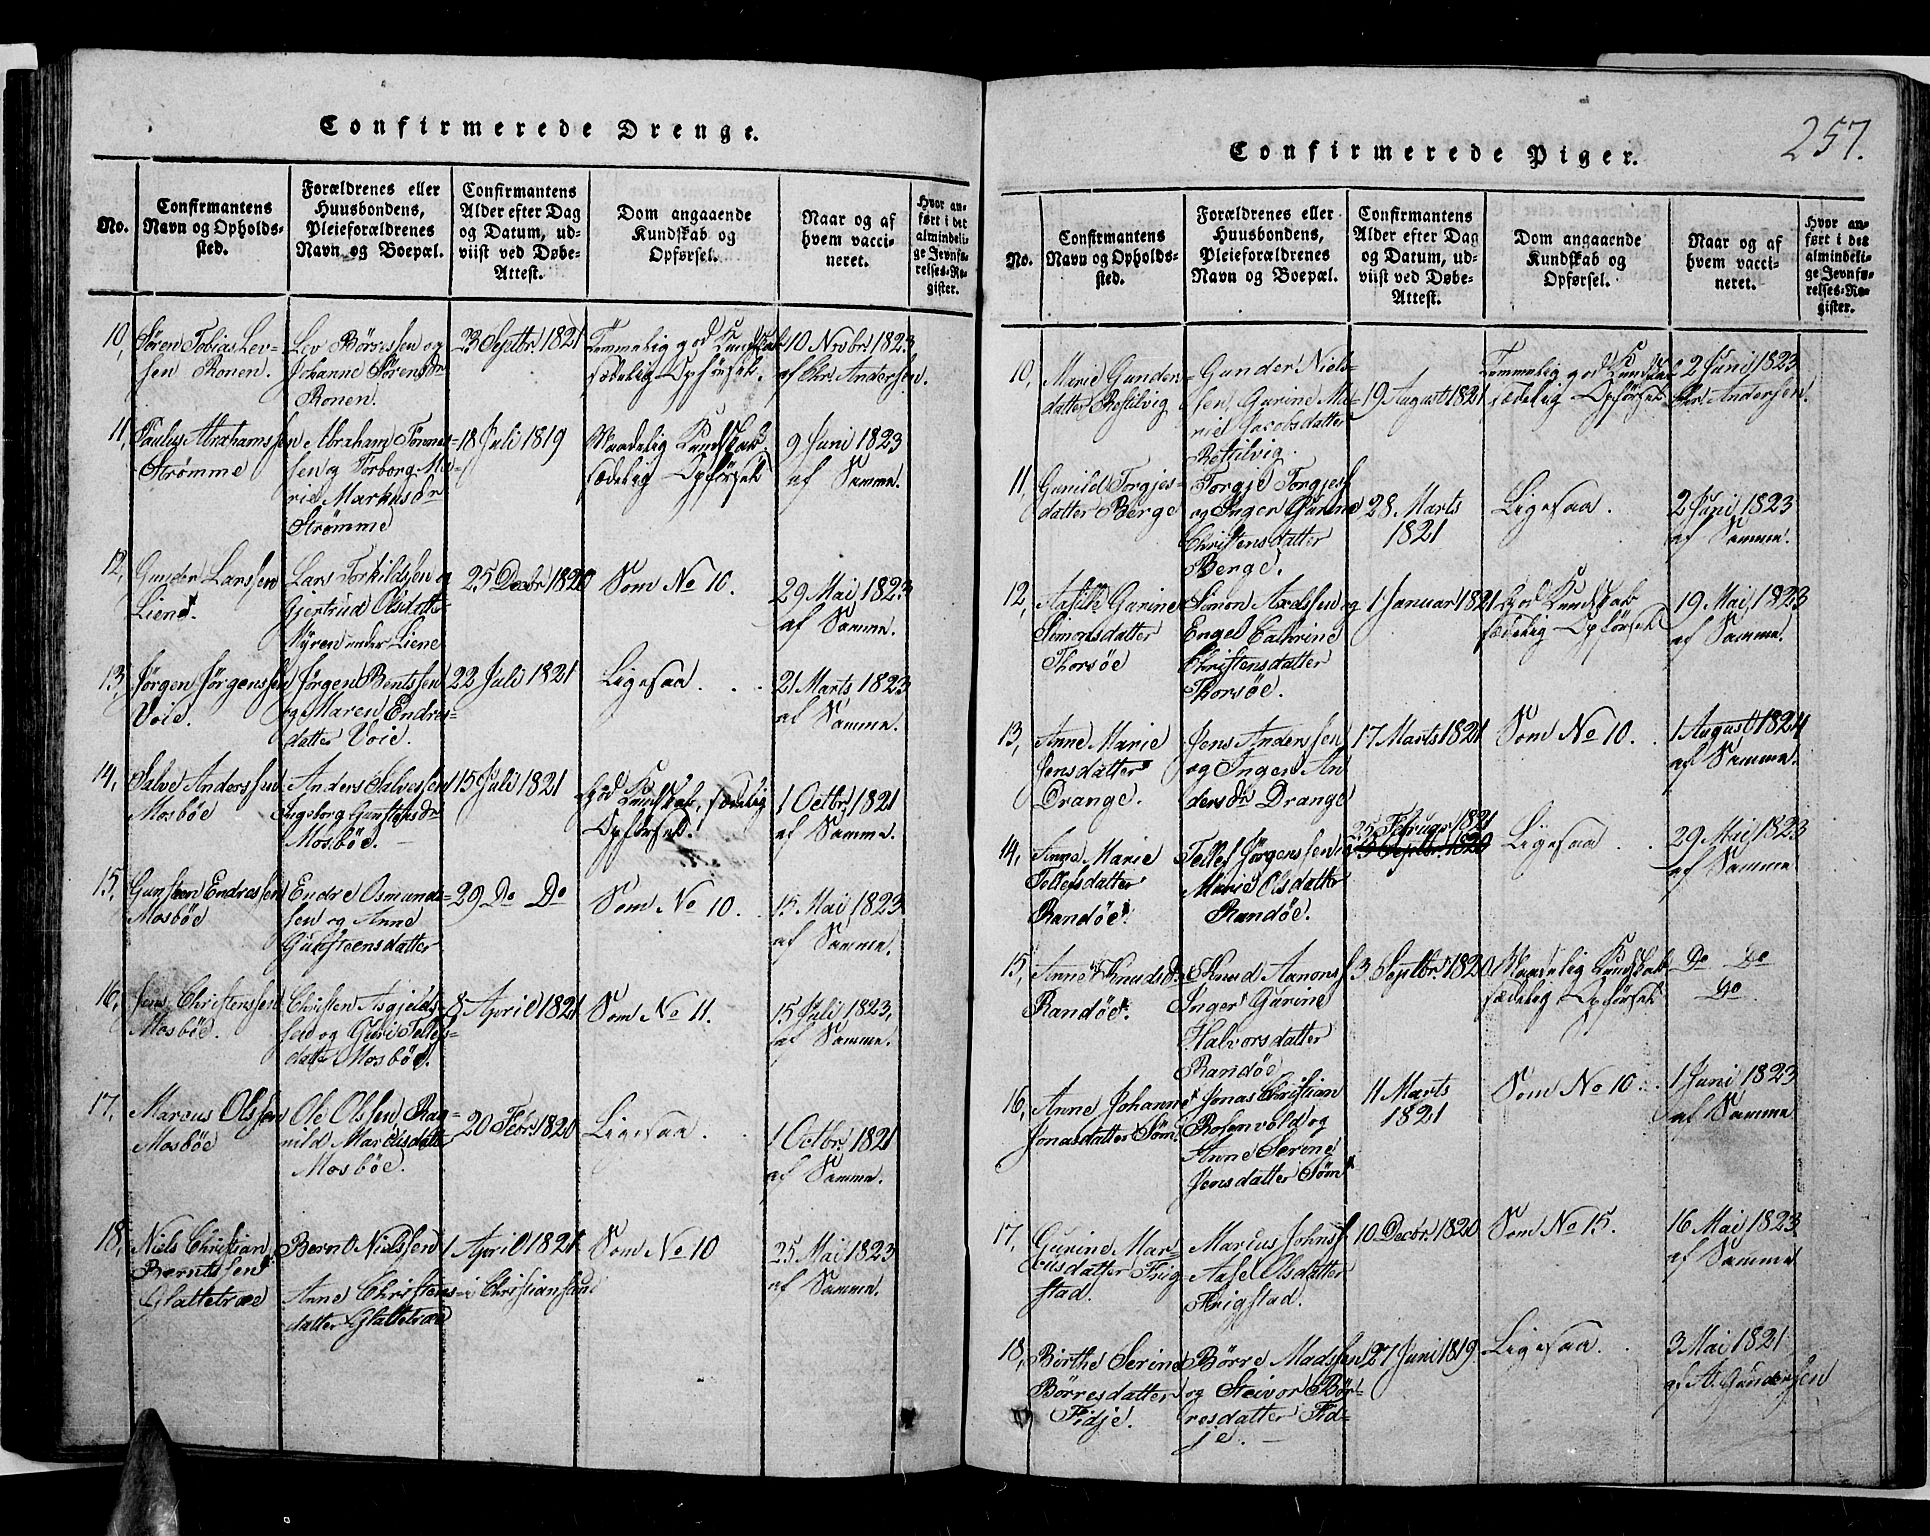 Confirmerede Drenge.
No.
Confirmantens
Navn og Opholds-
sted.
Forældrenes eller
Huusbondens,
Pleieforældrenes
Navn og Boepæl.
Confirmantens
Alder efter Dag
og Datum, ud-
viist ved Døbe-
Attest.
Dom angaaende
Kundskab og
Opførsel.
Naar og af
hvem vacci-
neret.
Hvor an-
ført i det
almindeli-
ge Jevnfø-
relses-Re-
gister.
10,
Søren Tobias Lev-
sen Ronen.
Lev Børresen og
Johanne Sørensdr
Ronen.
23 Septbr. 1821
Temmelig god Kundskab
sædelig Opførsel.
10 Novbr. 1823
af Chr. Andersen.
11,
Paulus Abrahamssen
Strømme
Abraham Tommes-
sen og Torborg Ma-
rie Markusdr
Strømme
18 Juli 1819
Maadelig Kundskab
sædelig Opførsel
9 Juni 1823
af Samme.
12,
Gunder Larssen
Liene.
Lars Torkildsen og
Gjertrud Olsdatter
Myren under Liene
25 Decbr 1820
Som No 10.
29 Mai 1823
af Samme.
13,
Jørgen Jørgenssen
Voie.
Jørgen Bentssen
og Maren Endres-
datter Voie.
22 Juli 1821
Ligesaa. . .
21 Marts 1823
af Samme.
14,
Salve Anderssen
Mosbøe
Anders Salvessen
Ingeborg Gunstensdr
Mosbøe.
15 Juli 1821
God Kundskab, sædelig
Opførsel.
1 Octbr. 1821
af Samme.
15,
Gunsteen Endressen
Mosbøe
Endre Osmunds-
sen og Anne
Gunsteensdatter
29 Do Do
Som No 10.
15 Mai 1823
af Samme.
16,
Jens Christenssen
Mosbøe.
Christen Asgjelds-
sen og Guri Tellefs-
datter Mosbøe.
8 April 1821
Som No 11.
15 Juli 1823,
af Samme.
17,
Marcus Olssen
Mosbøe
Ole Olssen Rag-
nild Marcusdatter
Mosbøe.
20 Febr. 1820
Ligesaa. .
1 Octbr. 1821
af Samme.
18,
Niels Christian
Berntssen
Glattetræe
Bernt Nielssen
Anne Christens-
datter Glattetræe
1 April 1821
i Christianssand
Som No 10
25 Mai 1823
af Samme.
257.
Confirmerede Piger.
No.
Confirmantens
Navn og Opholds-
sted.
Forældrenes eller
Huusbondens,
Pleieforældrenes
Navn og Boepæl.
Confirmantens
Alder efter Dag
og Datum, ud-
viist ved Døbe-
Attest.
Dom angaaende
Kundskab og
Opførsel.
Naar og af
hvem vacci-
neret.
Hvor an-
ført i det
almindeli-
ge Jevnfø-
relses-Re-
gister.
10,
Marie Gunder-
datter Røstilvig
Gunder Niels-
sen, Gurine Ma-
rie Jacobsdatter
Røstilvig.
19 August 1821
Temmelig god Kundskab
sædelig Opførsel
2 Juni 1823
Chr. Andersen.
11,
Gunild Torgjes-
datter Berge
Torgje Torgjess
og Inger Gurine
Christensdatter
Berge.
28 Marts
1821
Ligesaa.
2 Juni 1823
af Samme.
12,
Aasille Gurine
Simonsdatter
Thorsøe
Simon Axelssen og
Engel Cathrine
Christensdatter
Thorsøe.
1 Januar 1821
God Kundskab
sædelig Opførsel
19 Mai, 1823
af Samme.
13,
Anne Marie
Jensdatter
Drange.
Jens Anderssen
og Inger An
dersdr Drange
17 Marts 1821
Som No 10. .
1 August 1824
af Samme.
14,
Anne Marie
Tellefsdatter
Randøe.
Tellef Jørgenssen
Marie Olsdatter
Randøe.
25 Februar 1821
3 Septbr. 1820
Ligesaa . .
29 Mai 1823
af Samme.
15,
Anne Knudsdr
Randøe.
Knud Aanons
Inger Gurine
Halvorsdatter
Randøe
3 Septbr 1820
Maadelig Kundskab
sædelig Opførsel
Do Do
Do.
16,
Anne Johanne
Jonasdatter Søm.
Jonas Christian
Rosenvold og
Anne Serine
Jensdatter Søm
11 Marts
1821
Som No 10.
1 Juni 1823
af Samme
17,
Gurine Mar-
cusdatter Frig
stad.
Marcus Johns
Aase Olsdatter
Frigstad.
10 Decbr. 1820
Som No 15.
16 Mai 1823
af Samme
18,
Børthe Serine
Børresdatter
Fidje.
Børre Madssen
og Steivor Bør-
resdatter Fid-
je.
27 Juni 1819.
Ligesaa. .
3 Mai 1821
af A. Gundersen